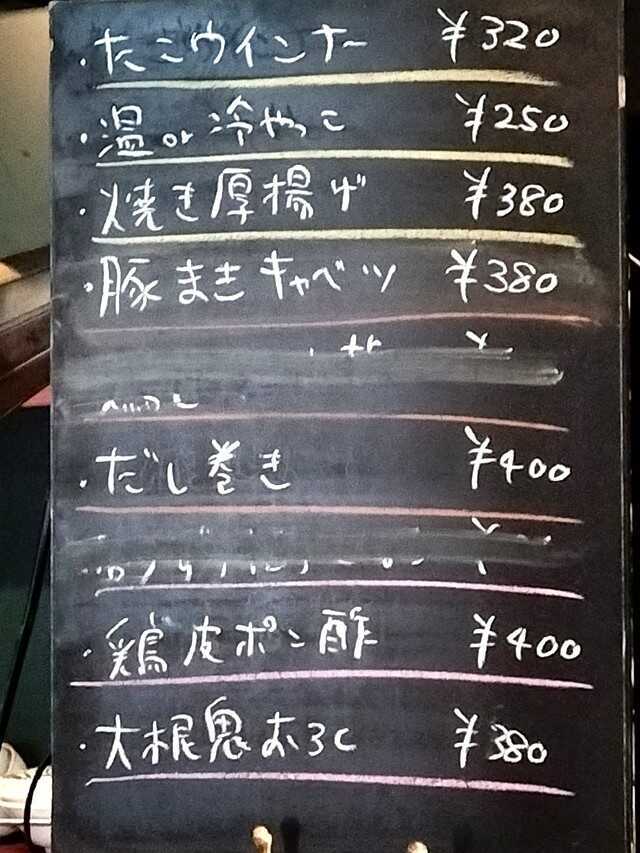 ・たこウインナー ¥320
・温or冷やっこ ¥250
・焼き厚揚げ ¥380
・豚まきキャベツ ¥380
・だし巻き ¥400
・鶏皮ポン酢 ¥400
・大根鬼おろし ¥380